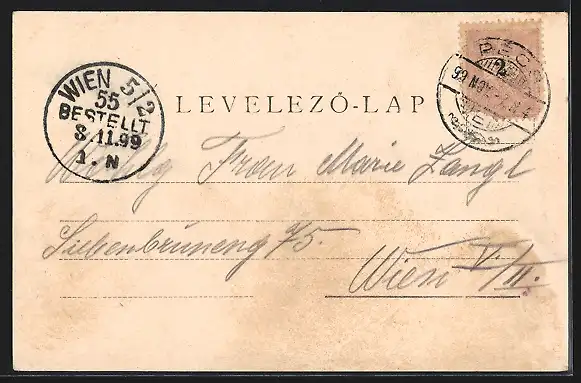 WIEN 5/2
55
BESTELLT
8.11.99
1.N
LEVELEZŐ-LAP
PÉCS
99 NOV.
2
Frau Marie Zangl
Siebenbrüneng 75.
Wien V/II.